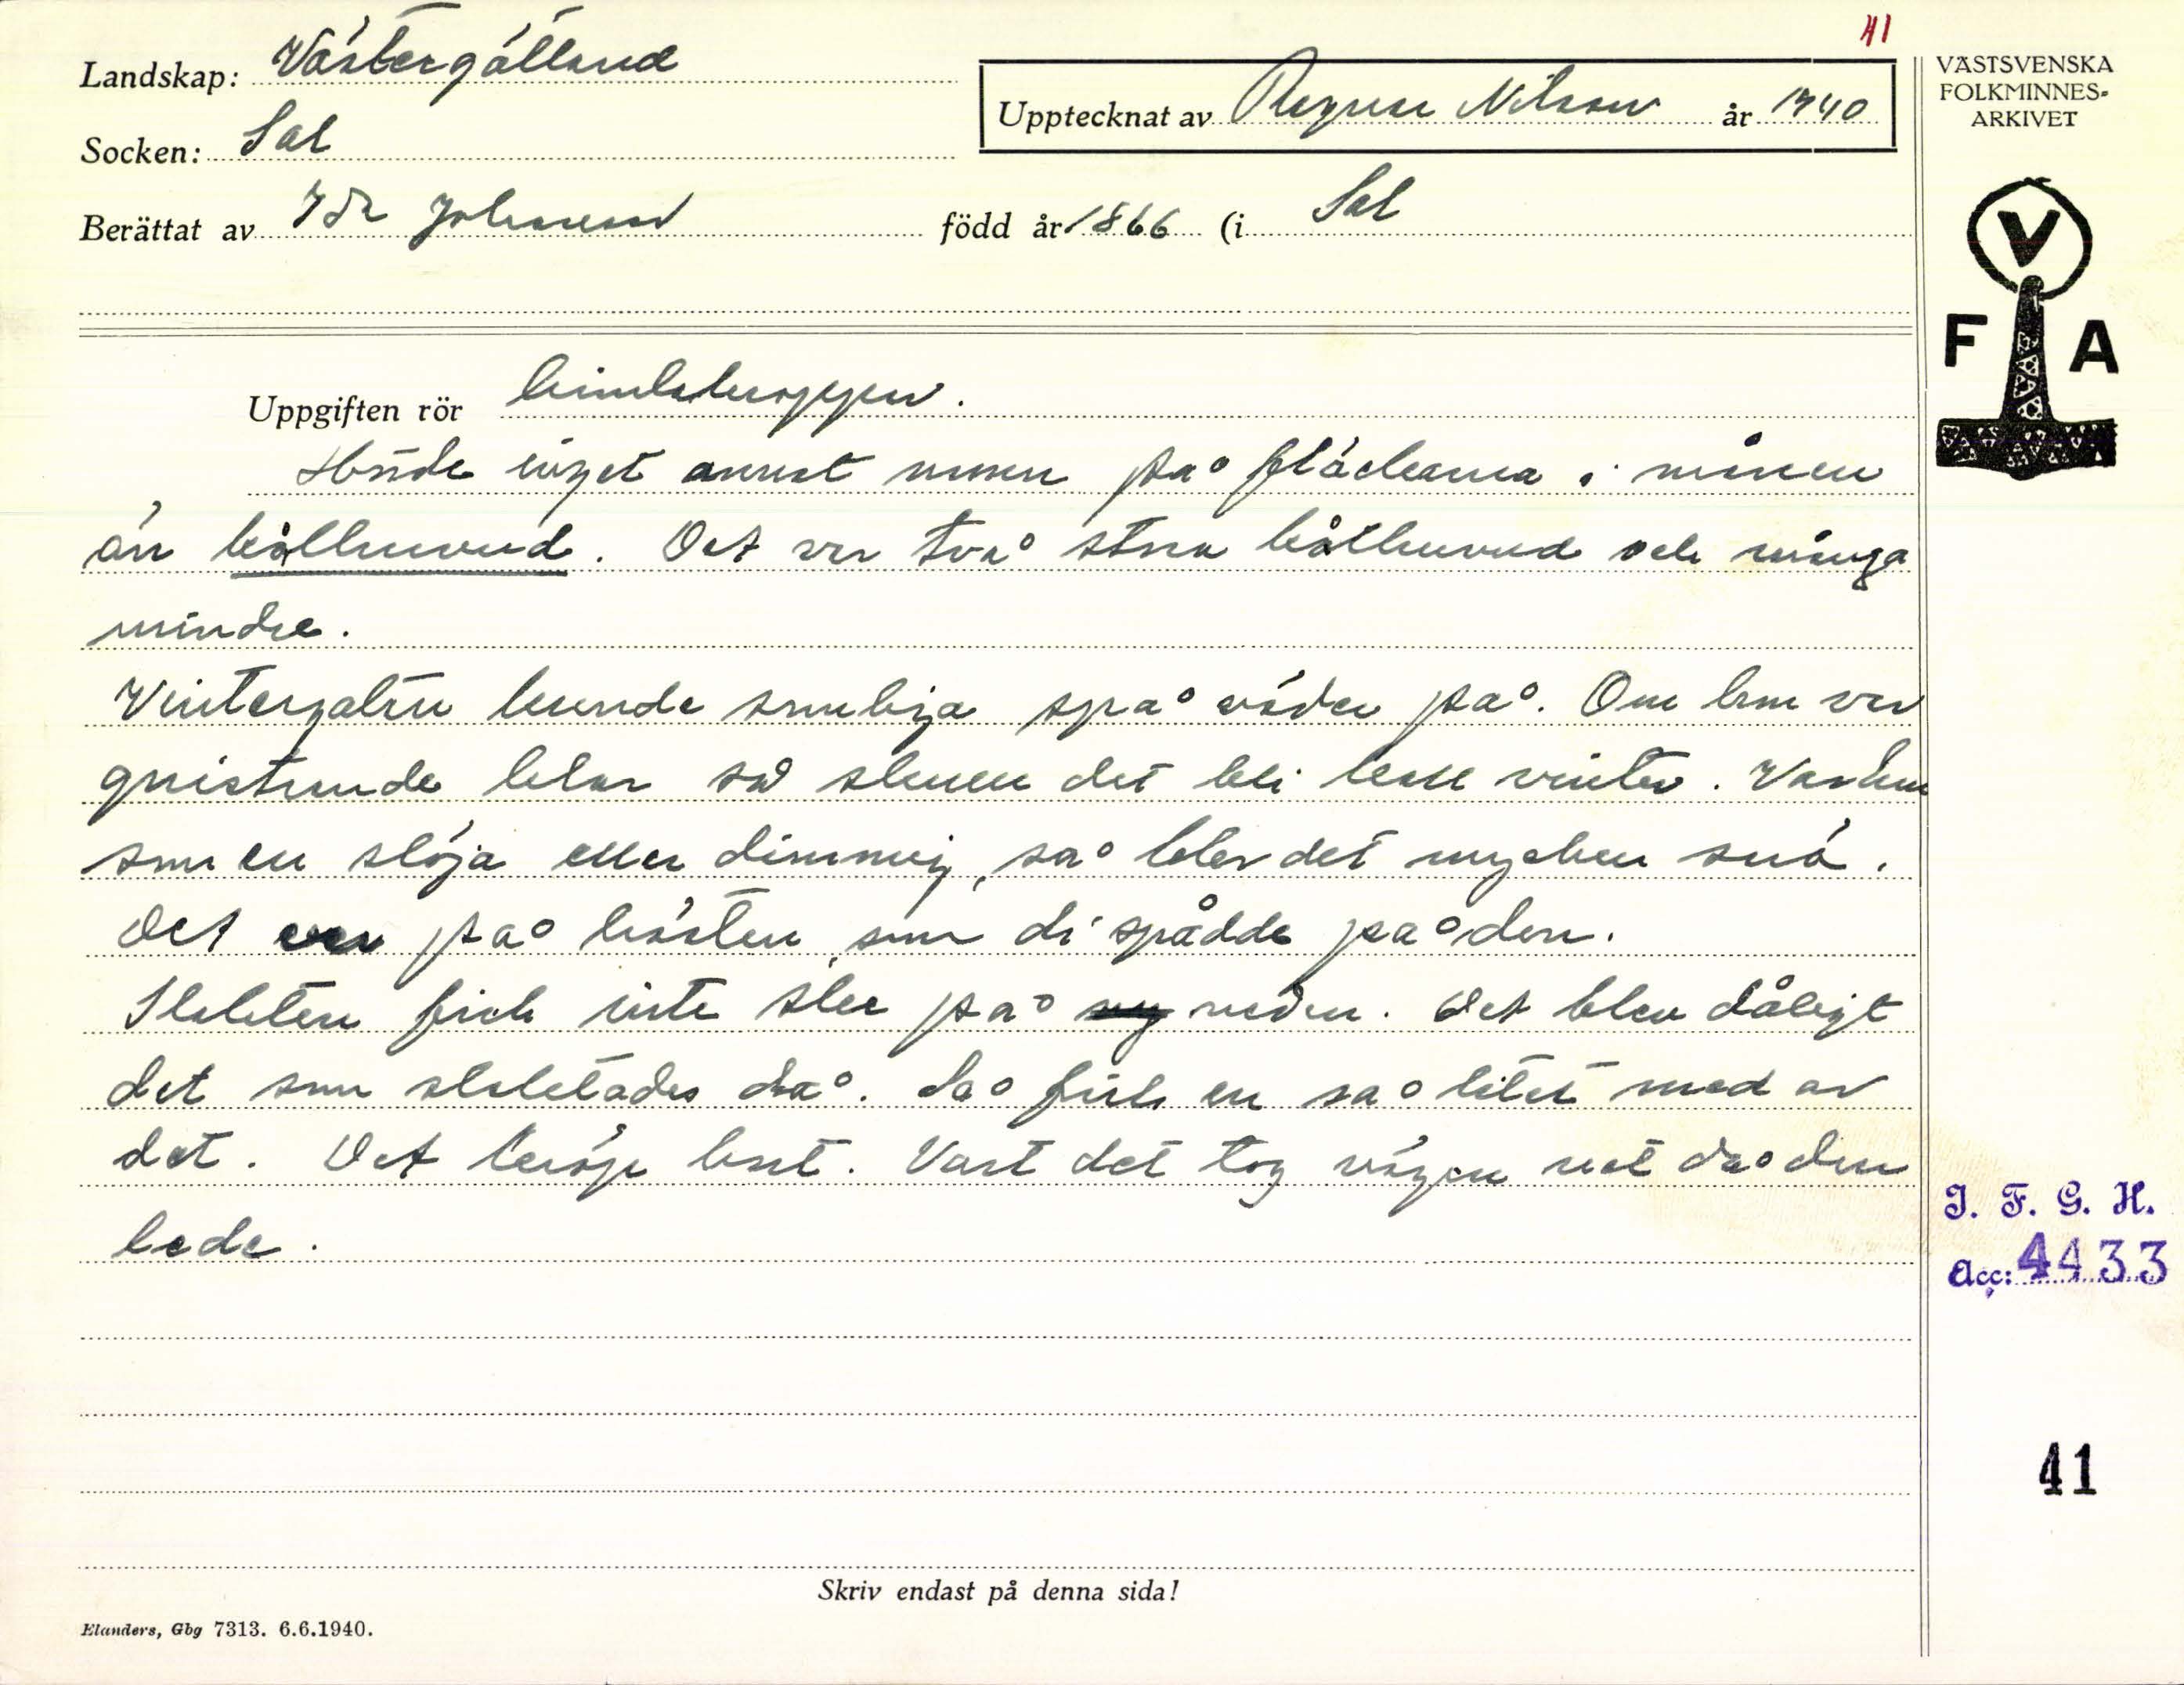 41
Landskap: Västergötland
Upptecknat av Ragnar Nilsson år 1940
Socken: Sal
Berättat av Ida Johansson född år 1866 (i Sal
VÄSTSVENSKA
FOLKMINNES-
ARKIVET
V
F A
Uppgiften rör himlakroppen.
Hörde inget annat namn på fläckarna i månen
än kålhuvud. Det var två stora kålhuvud och många
mindre.
Vintergatan kunde somliga spå väder på. Om hon var
gnistrande klar så skulle det bli kall vinter. Var hon
som en slöja eller dimmig, så blev det mycken snö.
Det var på hösten, som di spådde på den.
Slakten fick inte ske på ny nedan. Det blev dåligt
det som slaktades då. Så fick en så litet mad av
det. Det kröp bort. Vart det tog vägen vet då den
lede.
I. F. G. H.
Acc: 4433
41
Skriv endast på denna sida!
Elanders, Gbg 7313. 6.6.1940.